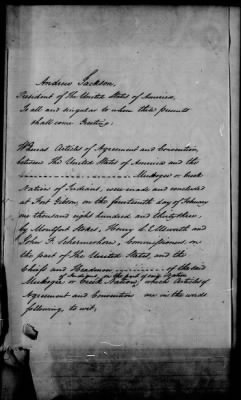 Andrew Jackson,
President of the United States of America,
To all and singular to whom these presents
shall come Greeting:
Whereas Articles of Agreement and Convention,
between The United States of America and the
Muskogee or Creek
Nation of Indians, were made and concluded
at Fort Gibson, on the fourteenth day of February
one thousand eight hundred and thirty three,
by Montfort Stokes, Henry L. Ellsworth and
John F. Schermerhorn, Commissioners on
the part of The United States, and the
Chiefs and Headmen of the said
of Indians, on the part of
Muskogee or Creek Nation, which Articles of
Agreement and Convention are in the words
following, to wit,